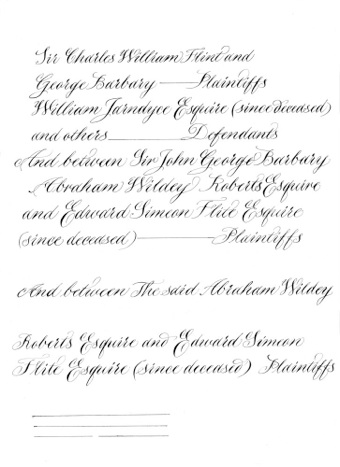 Sir Charles William Flint and
George Barbary ——— Plaintiffs
William Jarndyce Esquire (since deceased)
and others ________ Defendants
And between Sir John George Barbary
Abraham Wildey Roberts Esquire
and Edward Simeon Flite Esquire
(since deceased) ——— Plaintiffs
And between The said Abraham Wildey
Roberts Esquire and Edward Simeon
Flite Esquire (since deceased) Plaintiffs